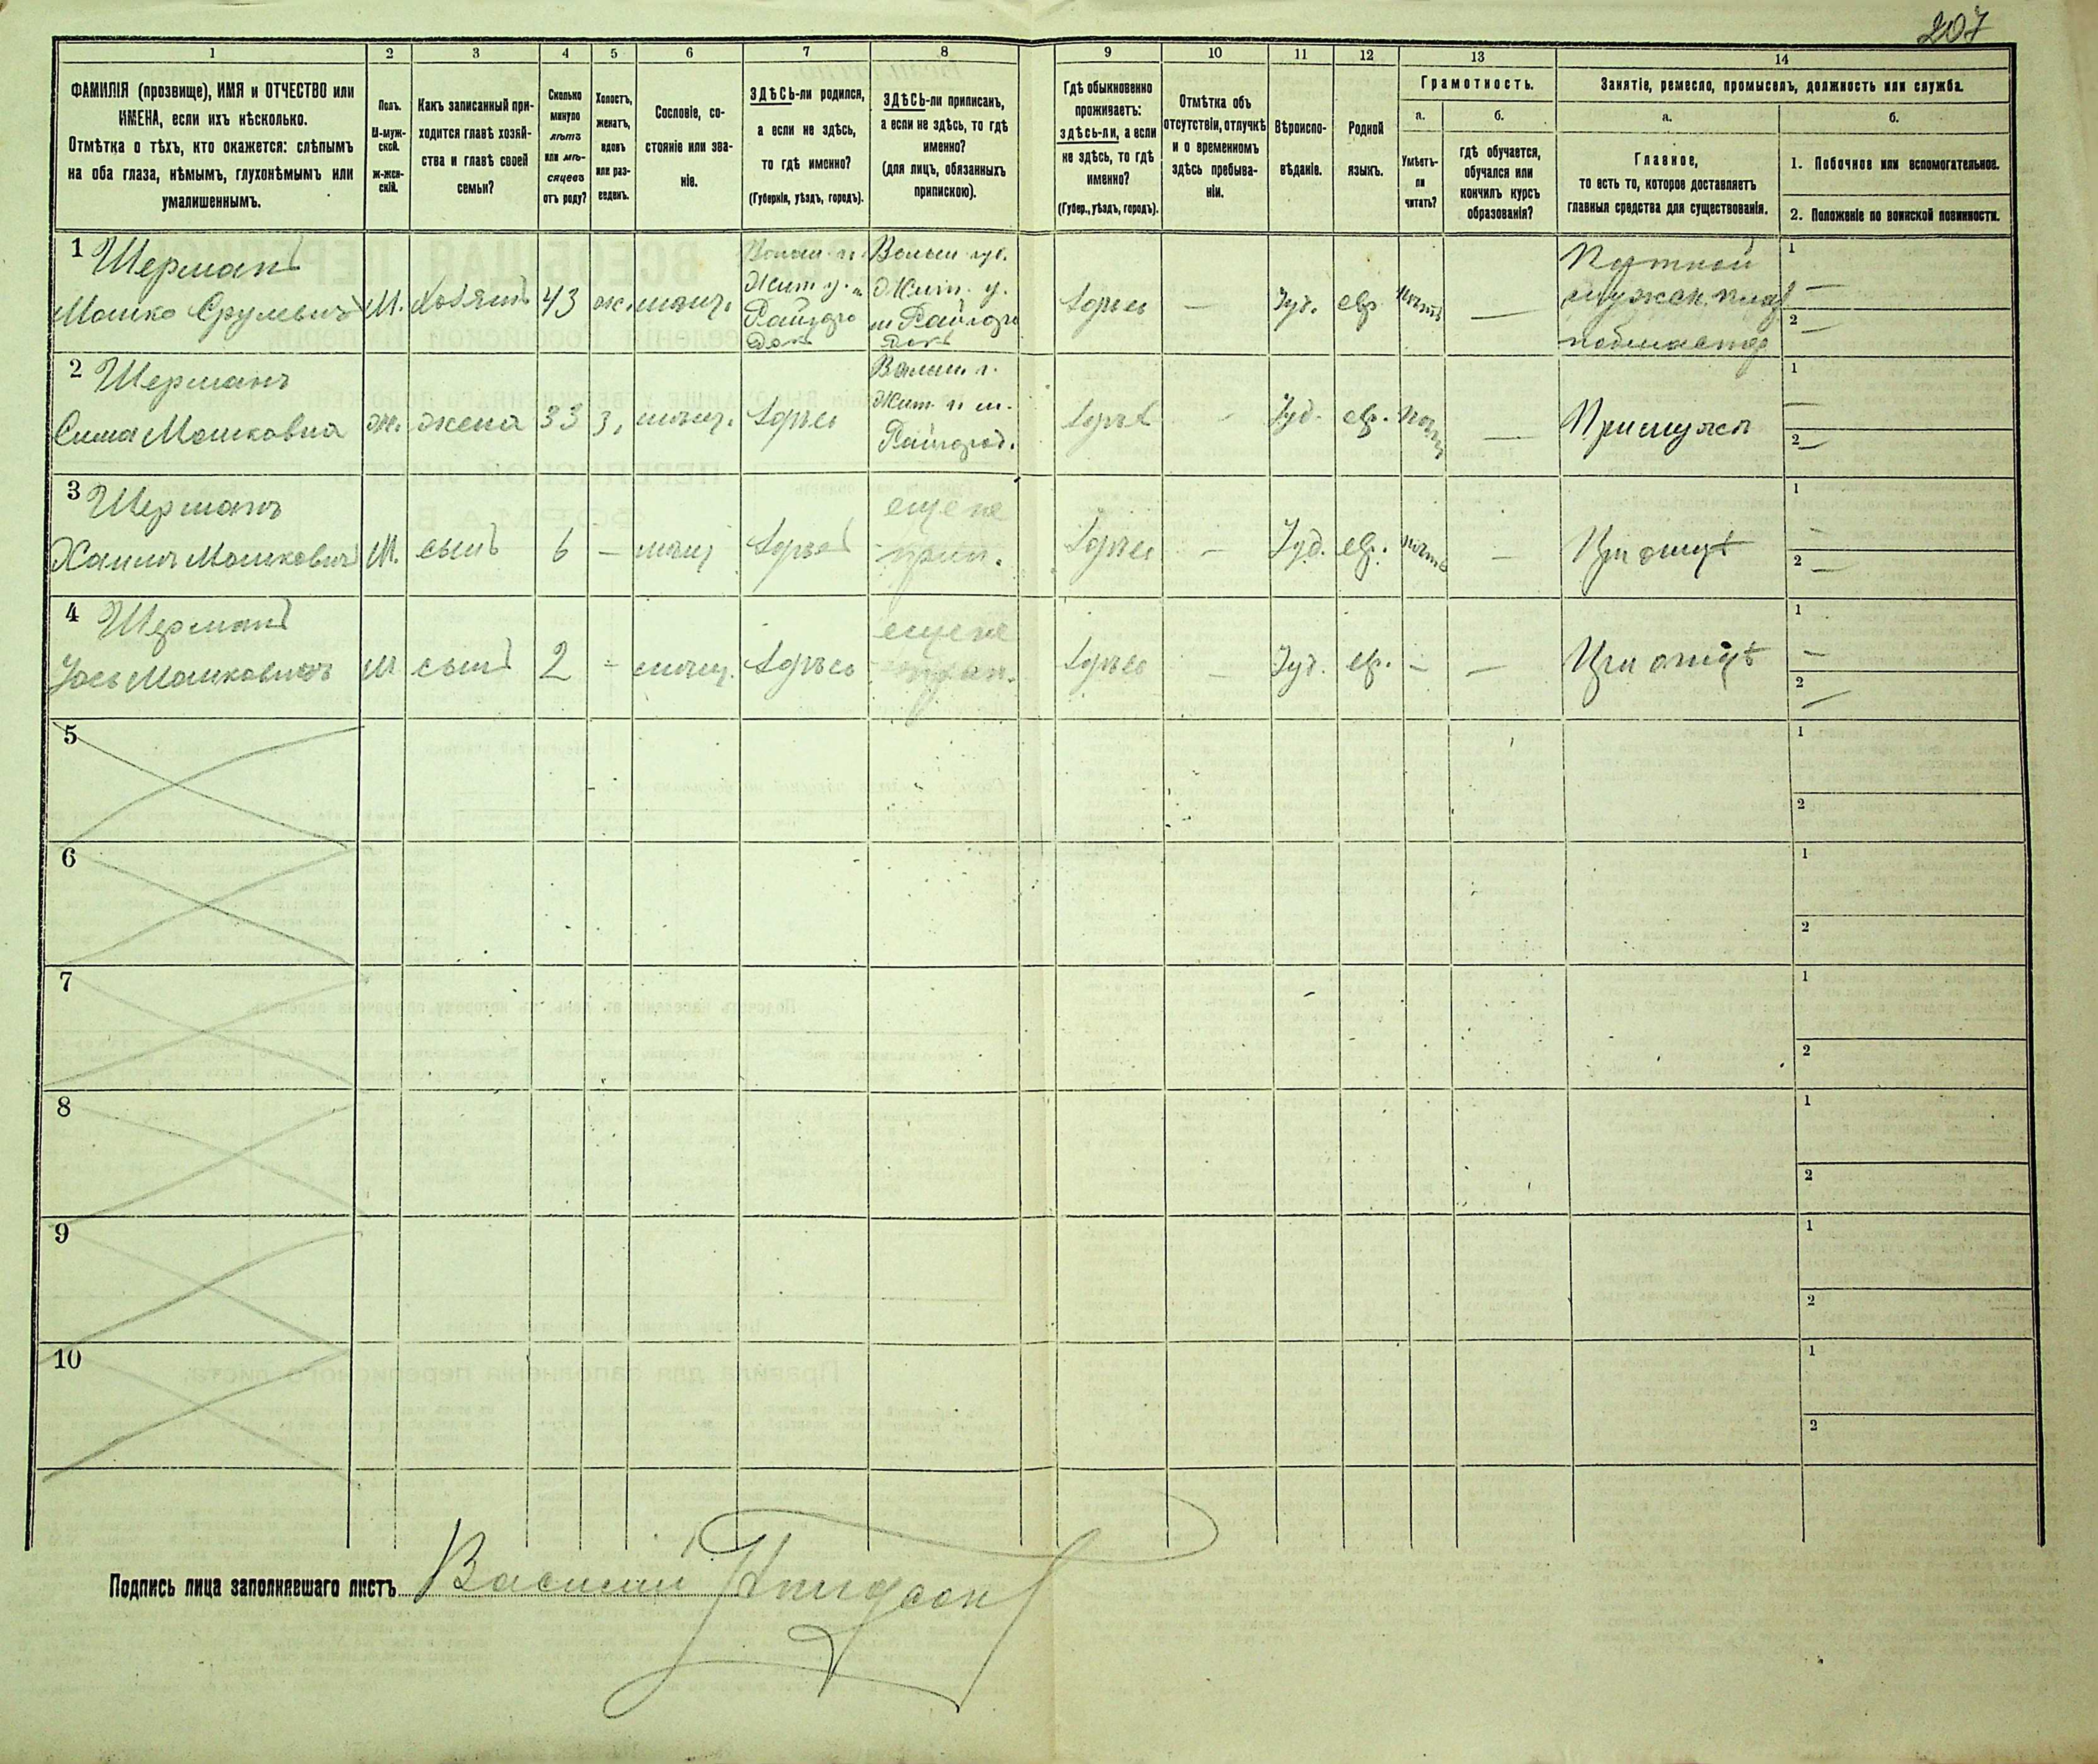 207
1
ФАМИЛІЯ (прозвище), ИМЯ и ОТЧЕСТВО или
ИМЕНА, если ихъ нѣсколько.
Отмѣтка о тѣхъ, кто окажется: слѣпымъ
на оба глаза, нѣмымъ, глухонѣмымъ или
умалишеннымъ.
2
Полъ.
М-муж-
ской.
Ж-жен-
скій.
3
Какъ записанный при-
ходится главѣ хозяй-
ства и главѣ своей
семьи?
4
Сколько
минуло
лѣтъ
или мѣ-
сяцевъ
отъ роду?
5
Холостъ,
женатъ,
вдовъ
или раз-
веденъ.
6
Сословіе, со-
стояніе или зва-
ніе.
7
ЗДѢСЬ-ли родился,
а если не здѣсь,
то гдѣ именно?
(Губернія, уѣздъ, городъ).
8
ЗДѢСЬ-ли приписанъ,
а если не здѣсь, то гдѣ
именно?
(для лицъ, обязанныхъ
припискою).
9
Гдѣ обыкновенно
проживаетъ:
здѣсь-ли, а если
не здѣсь, то гдѣ
именно?
(Губер., уѣздъ, городъ).
10
Отмѣтка объ
отсутствіи, отлучкѣ
и о временномъ
здѣсь пребыва-
ніи.
11
Вѣроиспо-
вѣданіе.
12
Родной
языкъ.
13
Грамотность.
а.
Умѣетъ-
ли
читать?
б.
гдѣ обучается,
обучался или
кончилъ курсъ
образованія?
14
Занятіе, ремесло, промыселъ, должность или служба.
а.
Главное,
то есть то, которое доставляетъ
главныя средства для существованія.
б.
1. Побочное или вспомогательное.
2. Положеніе по воинской повинности.
1 Шерманъ
Мошко Срулевичъ
М. хозяинъ 43 ж. мѣщ.
Волын. г.
Жит. у. м.
Райгоро
докъ
Волын. губ.
Жит. у.
м Райгоро
докъ
здѣсь — Іуд. евр. —
1 —
2 —
2 Шерманъ
Сима Мошковна
ж. жена 33 з. мѣщ. здѣсь
Волын. г.
Жит. у м.
Райгород.
здѣсь - Іуд. евр. —
При мужѣ
1 —
2 —
3 Шерманъ
Хаимъ Мошковичъ
М. сынъ 6 — мѣщ здѣсь
еще не
прип.
здѣсь — Іуд. евр. —
При отцѣ
1 —
2 —
4 Шерманъ
Мошковичъ
М сынъ 2 - мѣщ. здѣсь
еще не
прип.
здѣсь — Іуд. евр. — —
При отцѣ
1 —
2 —
5
1
2
6
1
2
7
1
2
8
1
2
9
1
2
10
1
2
Подпись лица заполнявшаго листъ Василій